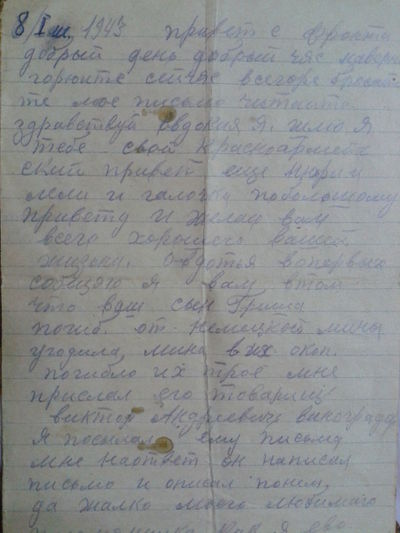 8/I м. 1943 привет с фронта
добрый день добрый час наверн
горюите сичяс всегоре бросаи
те мое письмо читаите
здравствуй Овдокия Я. шлю. Я
тебе свой красноармеи
ский привет еще
и галочки поболошому
привету и желаю вам
всего хорошего вашей
жизни. Овдотья вопервых
собщяю я вам втом
что ваш сын Гриша
погиб от немецкый мины
угодила, мина в их окоп.
погибло их трое мне
прислал его товарищ
виктор Андреевичь виноградов
Я посылал ему письмо
мне наответ он написал
письмо и описал поним,
да жалко моего любимаго
как я ево